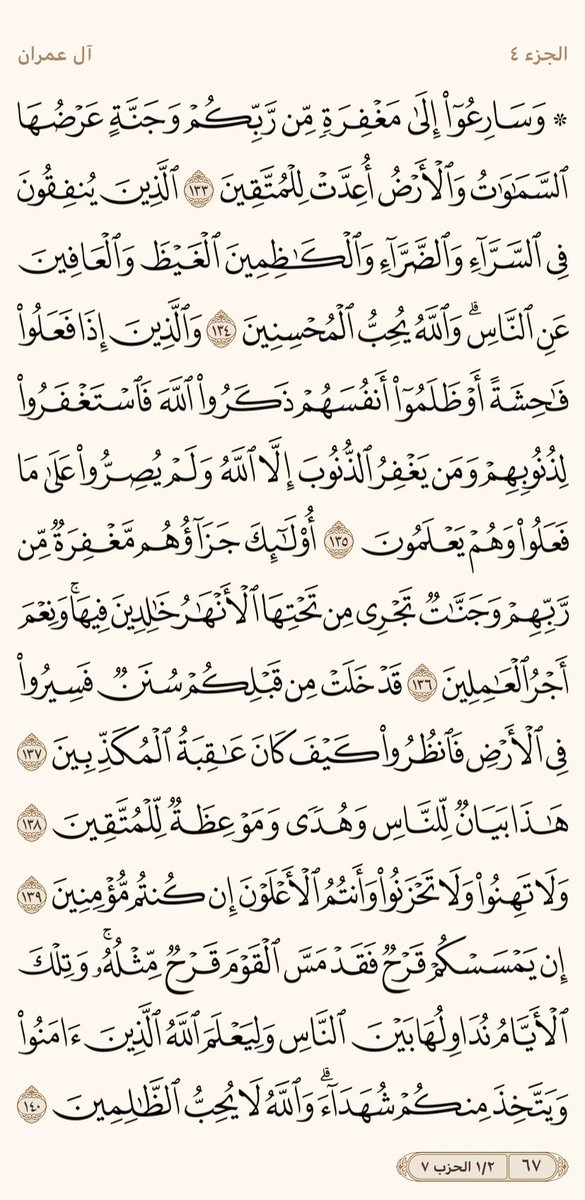 الجزء ٤
آل عمران
۞ وَسَارِعُوٓاْ إِلَىٰ مَغۡفِرَةٖ مِّن رَّبِّكُمۡ وَجَنَّةٍ عَرۡضُهَا
ٱلسَّمَٰوَٰتُ وَٱلۡأَرۡضُ أُعِدَّتۡ لِلۡمُتَّقِينَ ١٣٣ ٱلَّذِينَ يُنفِقُونَ
فِي ٱلسَّرَّآءِ وَٱلضَّرَّآءِ وَٱلۡكَٰظِمِينَ ٱلۡغَيۡظَ وَٱلۡعَافِينَ
عَنِ ٱلنَّاسِۗ وَٱللَّهُ يُحِبُّ ٱلۡمُحۡسِنِينَ ١٣٤ وَٱلَّذِينَ إِذَا فَعَلُواْ
فَٰحِشَةً أَوۡ ظَلَمُوٓاْ أَنفُسَهُمۡ ذَكَرُواْ ٱللَّهَ فَٱسۡتَغۡفَرُواْ
لِذُنُوبِهِمۡ وَمَن يَغۡفِرُ ٱلذُّنُوبَ إِلَّا ٱللَّهُ وَلَمۡ يُصِرُّواْ عَلَىٰ مَا
فَعَلُواْ وَهُمۡ يَعۡلَمُونَ ١٣٥ أُوْلَٰٓئِكَ جَزَآؤُهُم مَّغۡفِرَةٞ مِّن
رَّبِّهِمۡ وَجَنَّٰتٞ تَجۡرِي مِن تَحۡتِهَا ٱلۡأَنۡهَٰرُ خَٰلِدِينَ فِيهَاۚ وَنِعۡمَ
أَجۡرُ ٱلۡعَٰمِلِينَ ١٣٦ قَدۡ خَلَتۡ مِن قَبۡلِكُمۡ سُنَنٞ فَسِيرُواْ
فِي ٱلۡأَرۡضِ فَٱنظُرُواْ كَيۡفَ كَانَ عَٰقِبَةُ ٱلۡمُكَذِّبِينَ ١٣٧
هَٰذَا بَيَانٞ لِّلنَّاسِ وَهُدٗى وَمَوۡعِظَةٞ لِّلۡمُتَّقِينَ ١٣٨
وَلَا تَهِنُواْ وَلَا تَحۡزَنُواْ وَأَنتُمُ ٱلۡأَعۡلَوۡنَ إِن كُنتُم مُّؤۡمِنِينَ ١٣٩
إِن يَمۡسَسۡكُمۡ قَرۡحٞ فَقَدۡ مَسَّ ٱلۡقَوۡمَ قَرۡحٞ مِّثۡلُهُۥۚ وَتِلۡكَ
ٱلۡأَيَّامُ نُدَاوِلُهَا بَيۡنَ ٱلنَّاسِ وَلِيَعۡلَمَ ٱللَّهُ ٱلَّذِينَ ءَامَنُواْ
وَيَتَّخِذَ مِنكُمۡ شُهَدَآءَۗ وَٱللَّهُ لَا يُحِبُّ ٱلظَّٰلِمِينَ ١٤٠
٦٧
١/٢ الحزب ٧